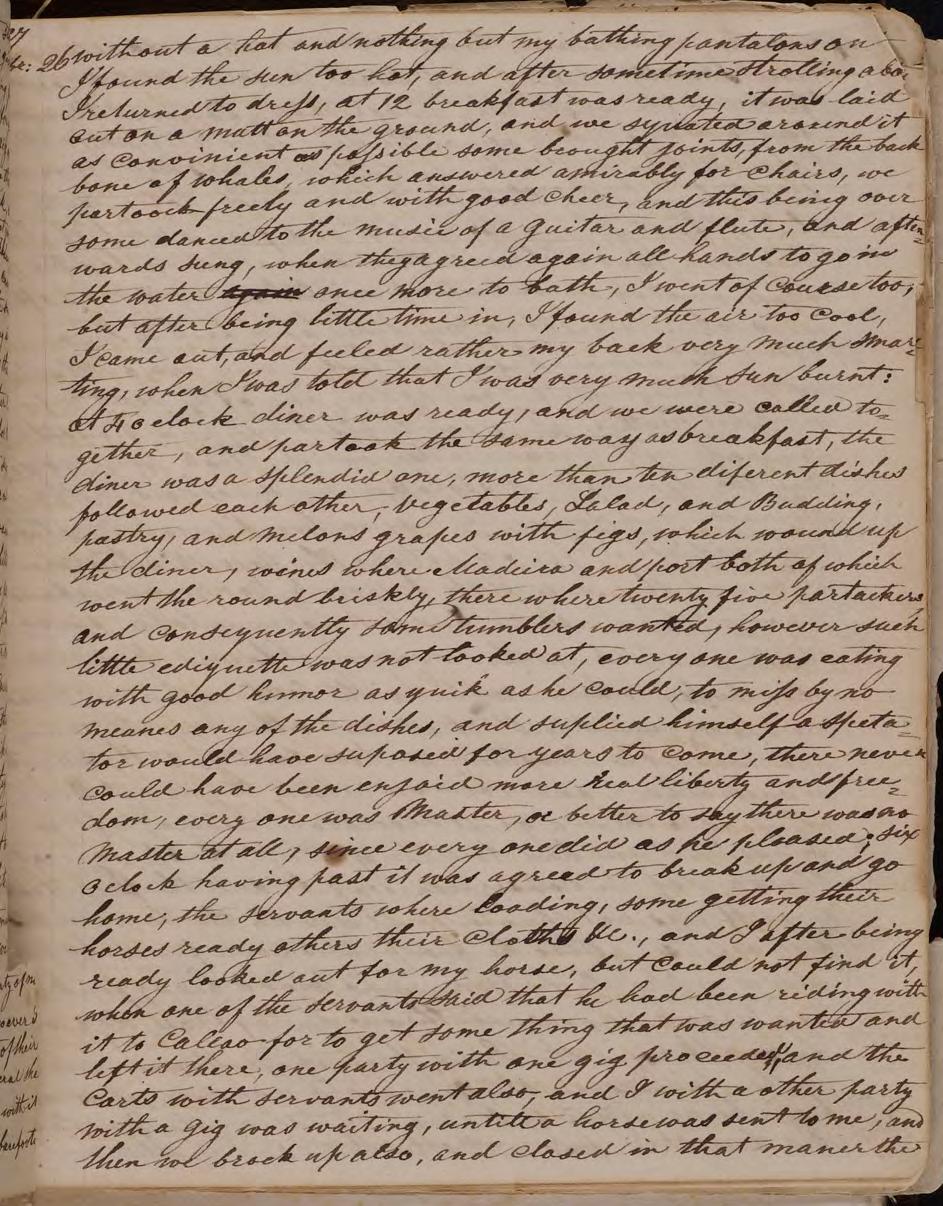 26 without a hat and nothing but my bathing pantalons on
I found the sun too hot, and after sometime strolling abou
I returned to dress, at 12 breakfast was ready, it was laid
out on a matt on the ground, and we squated around it
as convinient as possible some brought joints, from the back
bone of whales, which answered amirably for chairs, we
partoock freely and with good cheer, and this being over
some danced to the music of a guitar and flute, and after=
wards sung, when they agreed again all hands to go in
the water again once more to bath, I went of course too,
but after being little time in, I found the air too cool,
I came out, and feeled rather my back very much smar=
ting, when I was told that I was very much sun burnt:
At 4 o clock diner was ready, and we were called to=
gether, and partook the same way as breakfast, the
diner was a splendid one, more than ten diferent dishes
followed each other, vegetables, Salad, and Budding,
pastry, and Melons grapes with figs, which wound up
the diner, wines where Madeira and port both of which
went the round briskly, there where twenty five partackers
and consequently some tumblers wanted, however such
little ediquette was not looked at, every one was eating
with good humor as quik as he could, to miss by no
meanes any of the dishes, and suplied himself a speta=
tor would have suposed for years to come, there never
could have been enjoid more real liberty and free=
dom, every one was Master, or better to say there was no
Master at all, since every one did as he pleased; six
o clock having past it was agreed to break up and go
home, the servants where loading, some getting their
horses ready others their cloths &c., and I after being
ready looked out for my horse, but could not find it,
when one of the servants said that he had been riding with
it to Calleao for to get some thing that was wanted and
left it there, one party with one gig proceeded, and the
Carts with servants went also, and I with a other party
with a gig was waiting, untill a horse was sent to me, and
then we brock up also, and closed in that maner the